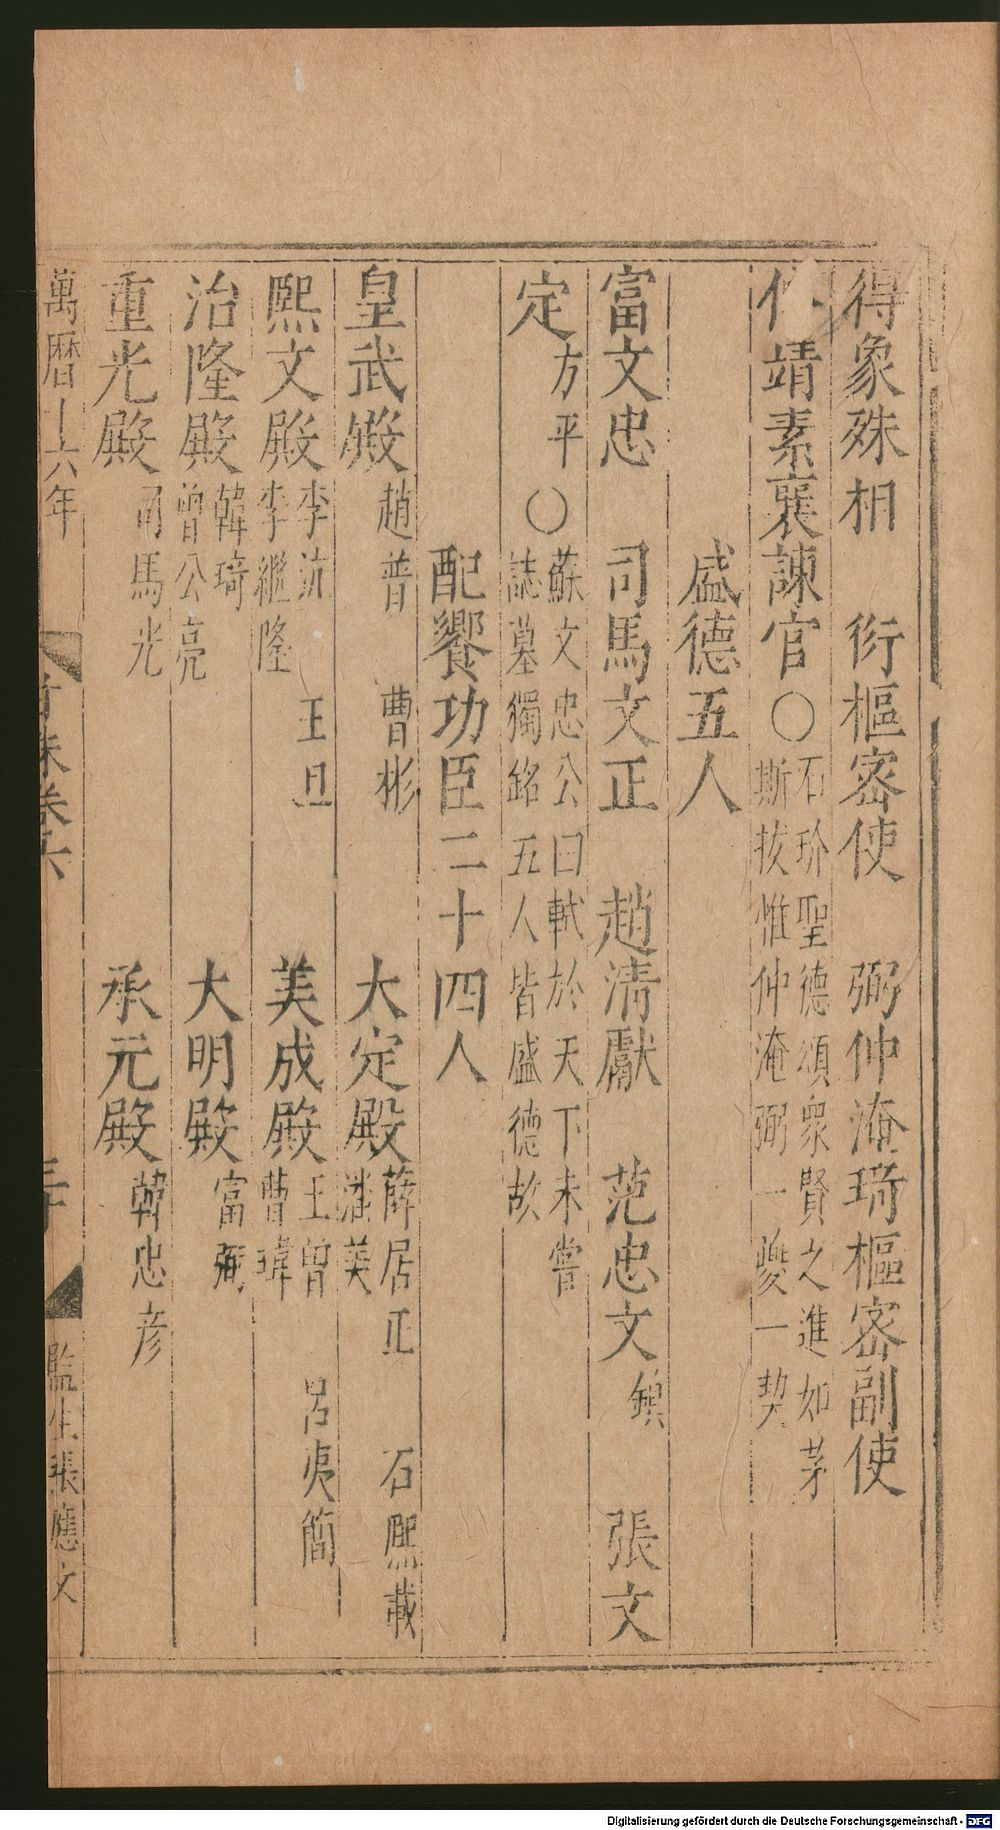 得象殊相 衍樞密使 弼仲淹琦樞密副使
靖素襄諫官○石玠聖德頌衆賢之進如茅
斯拔惟仲淹弼一夔一契
盛德五人
富文忠 司馬文正 趙清獻 范忠文鎮 張文
定方平○蘇文忠公曰軾於天下未嘗
誌墓獨銘五人皆盛德故
配饗功臣二十四人
皇武殿趙普 曹彬 大定殿薛居正 石熙載
潘美
熙文殿李沆 王旦 美成殿王曾 呂夷簡
李繼隆 曹瑋
治隆殿韓琦 大明殿富弼
曾公亮
重光殿司馬光 承元殿韓忠彦
萬曆十六年 卷六 監生張應文
Digitalisierung gefördert durch die Deutsche Forschungsgemeinschaft - DFG